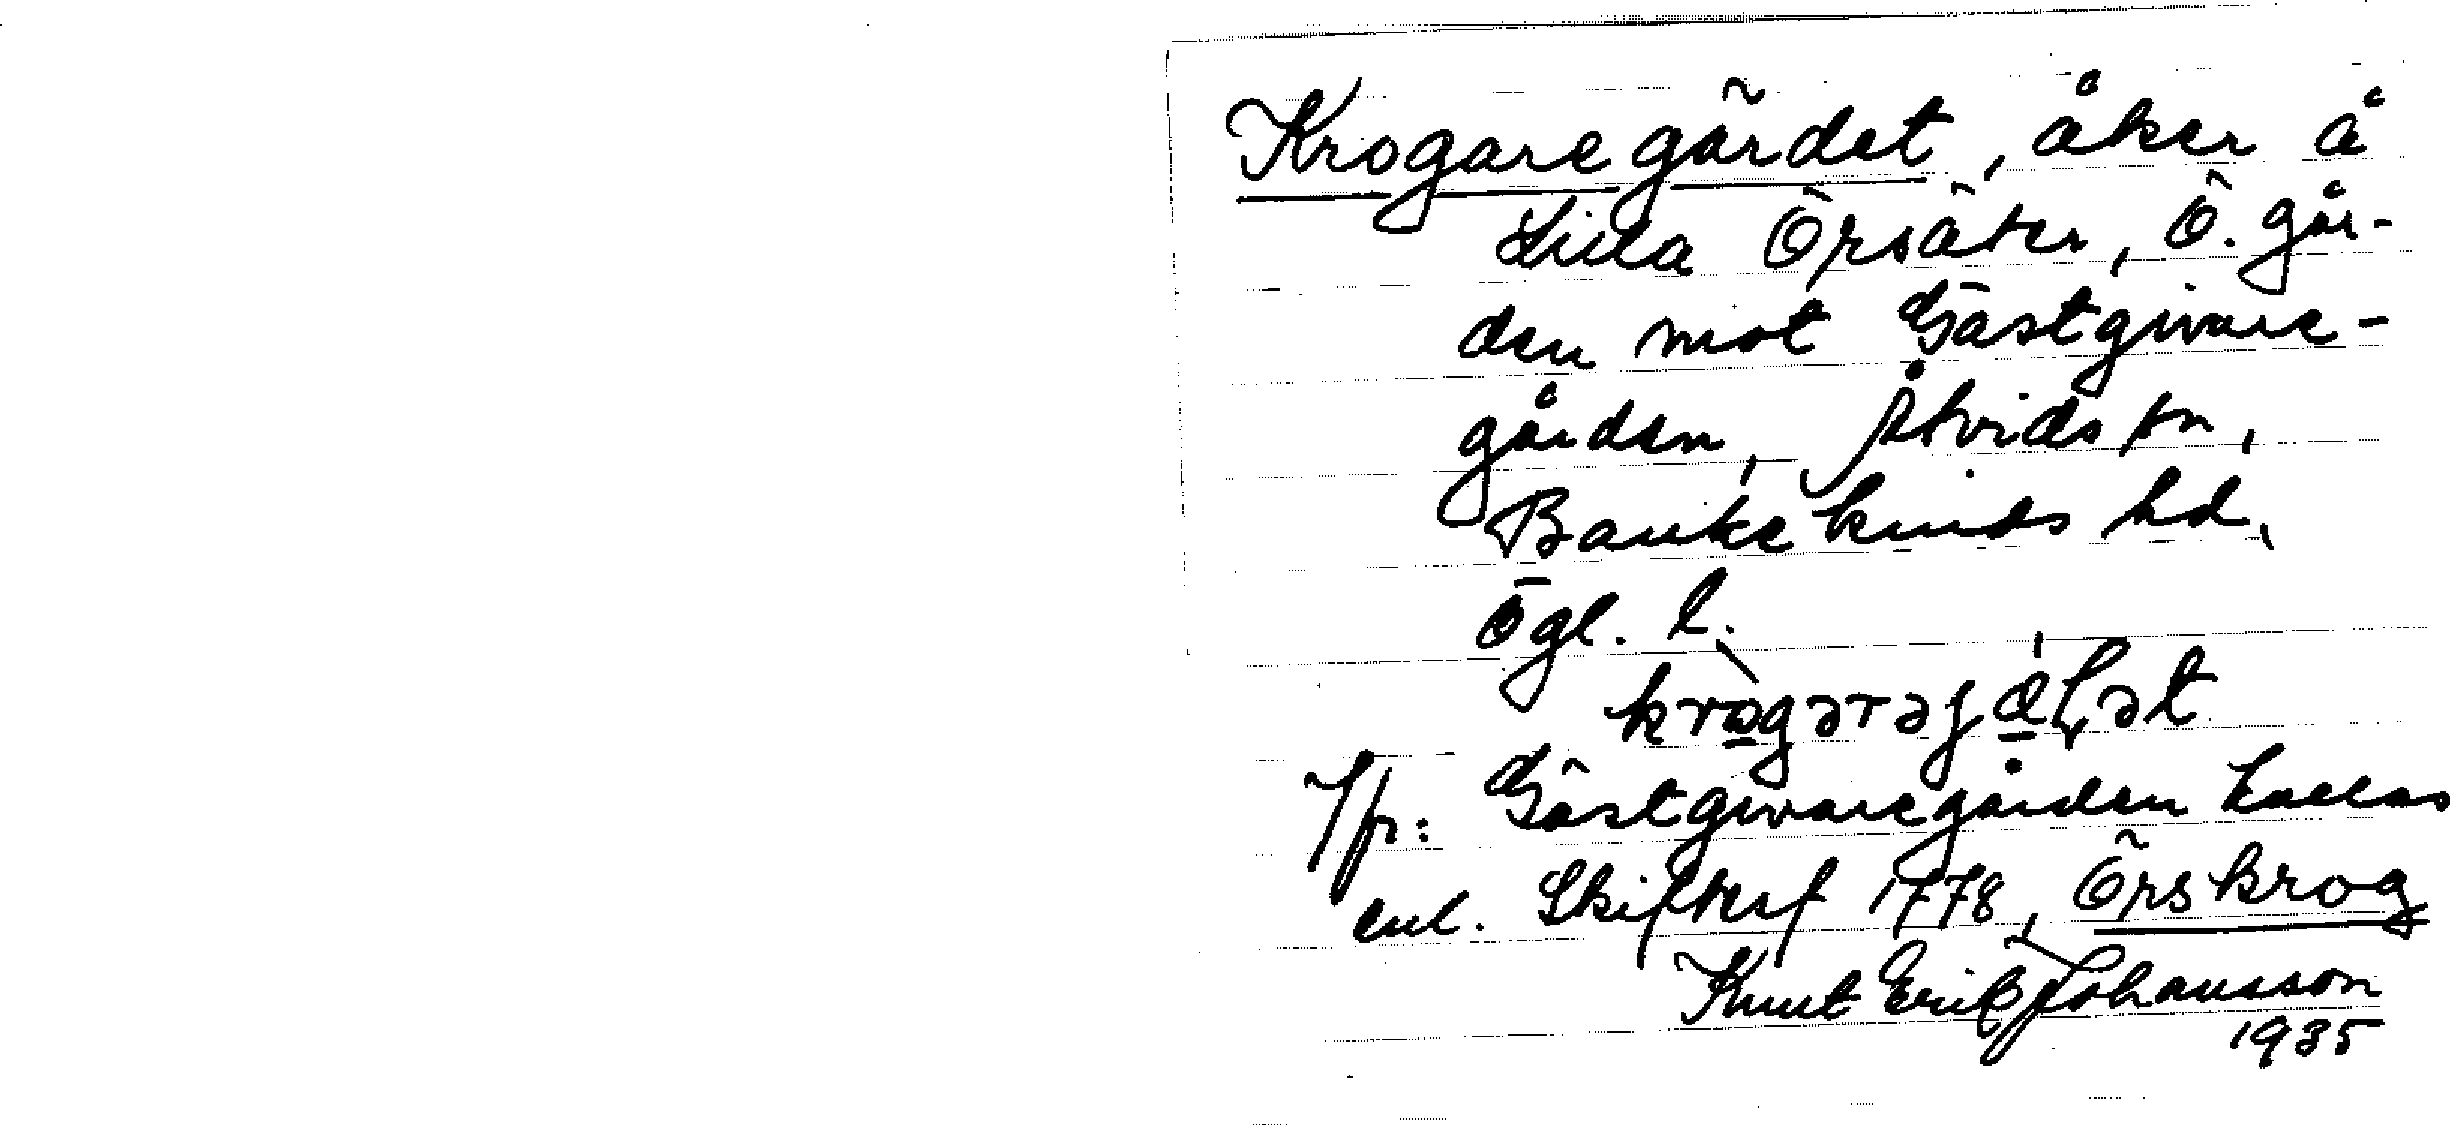 Krogaregärdet, åker å
Lilla Örsäter, Ö. går-
den mot Gästgivare-
gården, Åtvids sn,
Bankekinds hd,
Ögl. l.
Jfr: Gästgivaregården kallas
enl. Skiftesf 1778, Örskrog
Knut Erik Johansson
1935